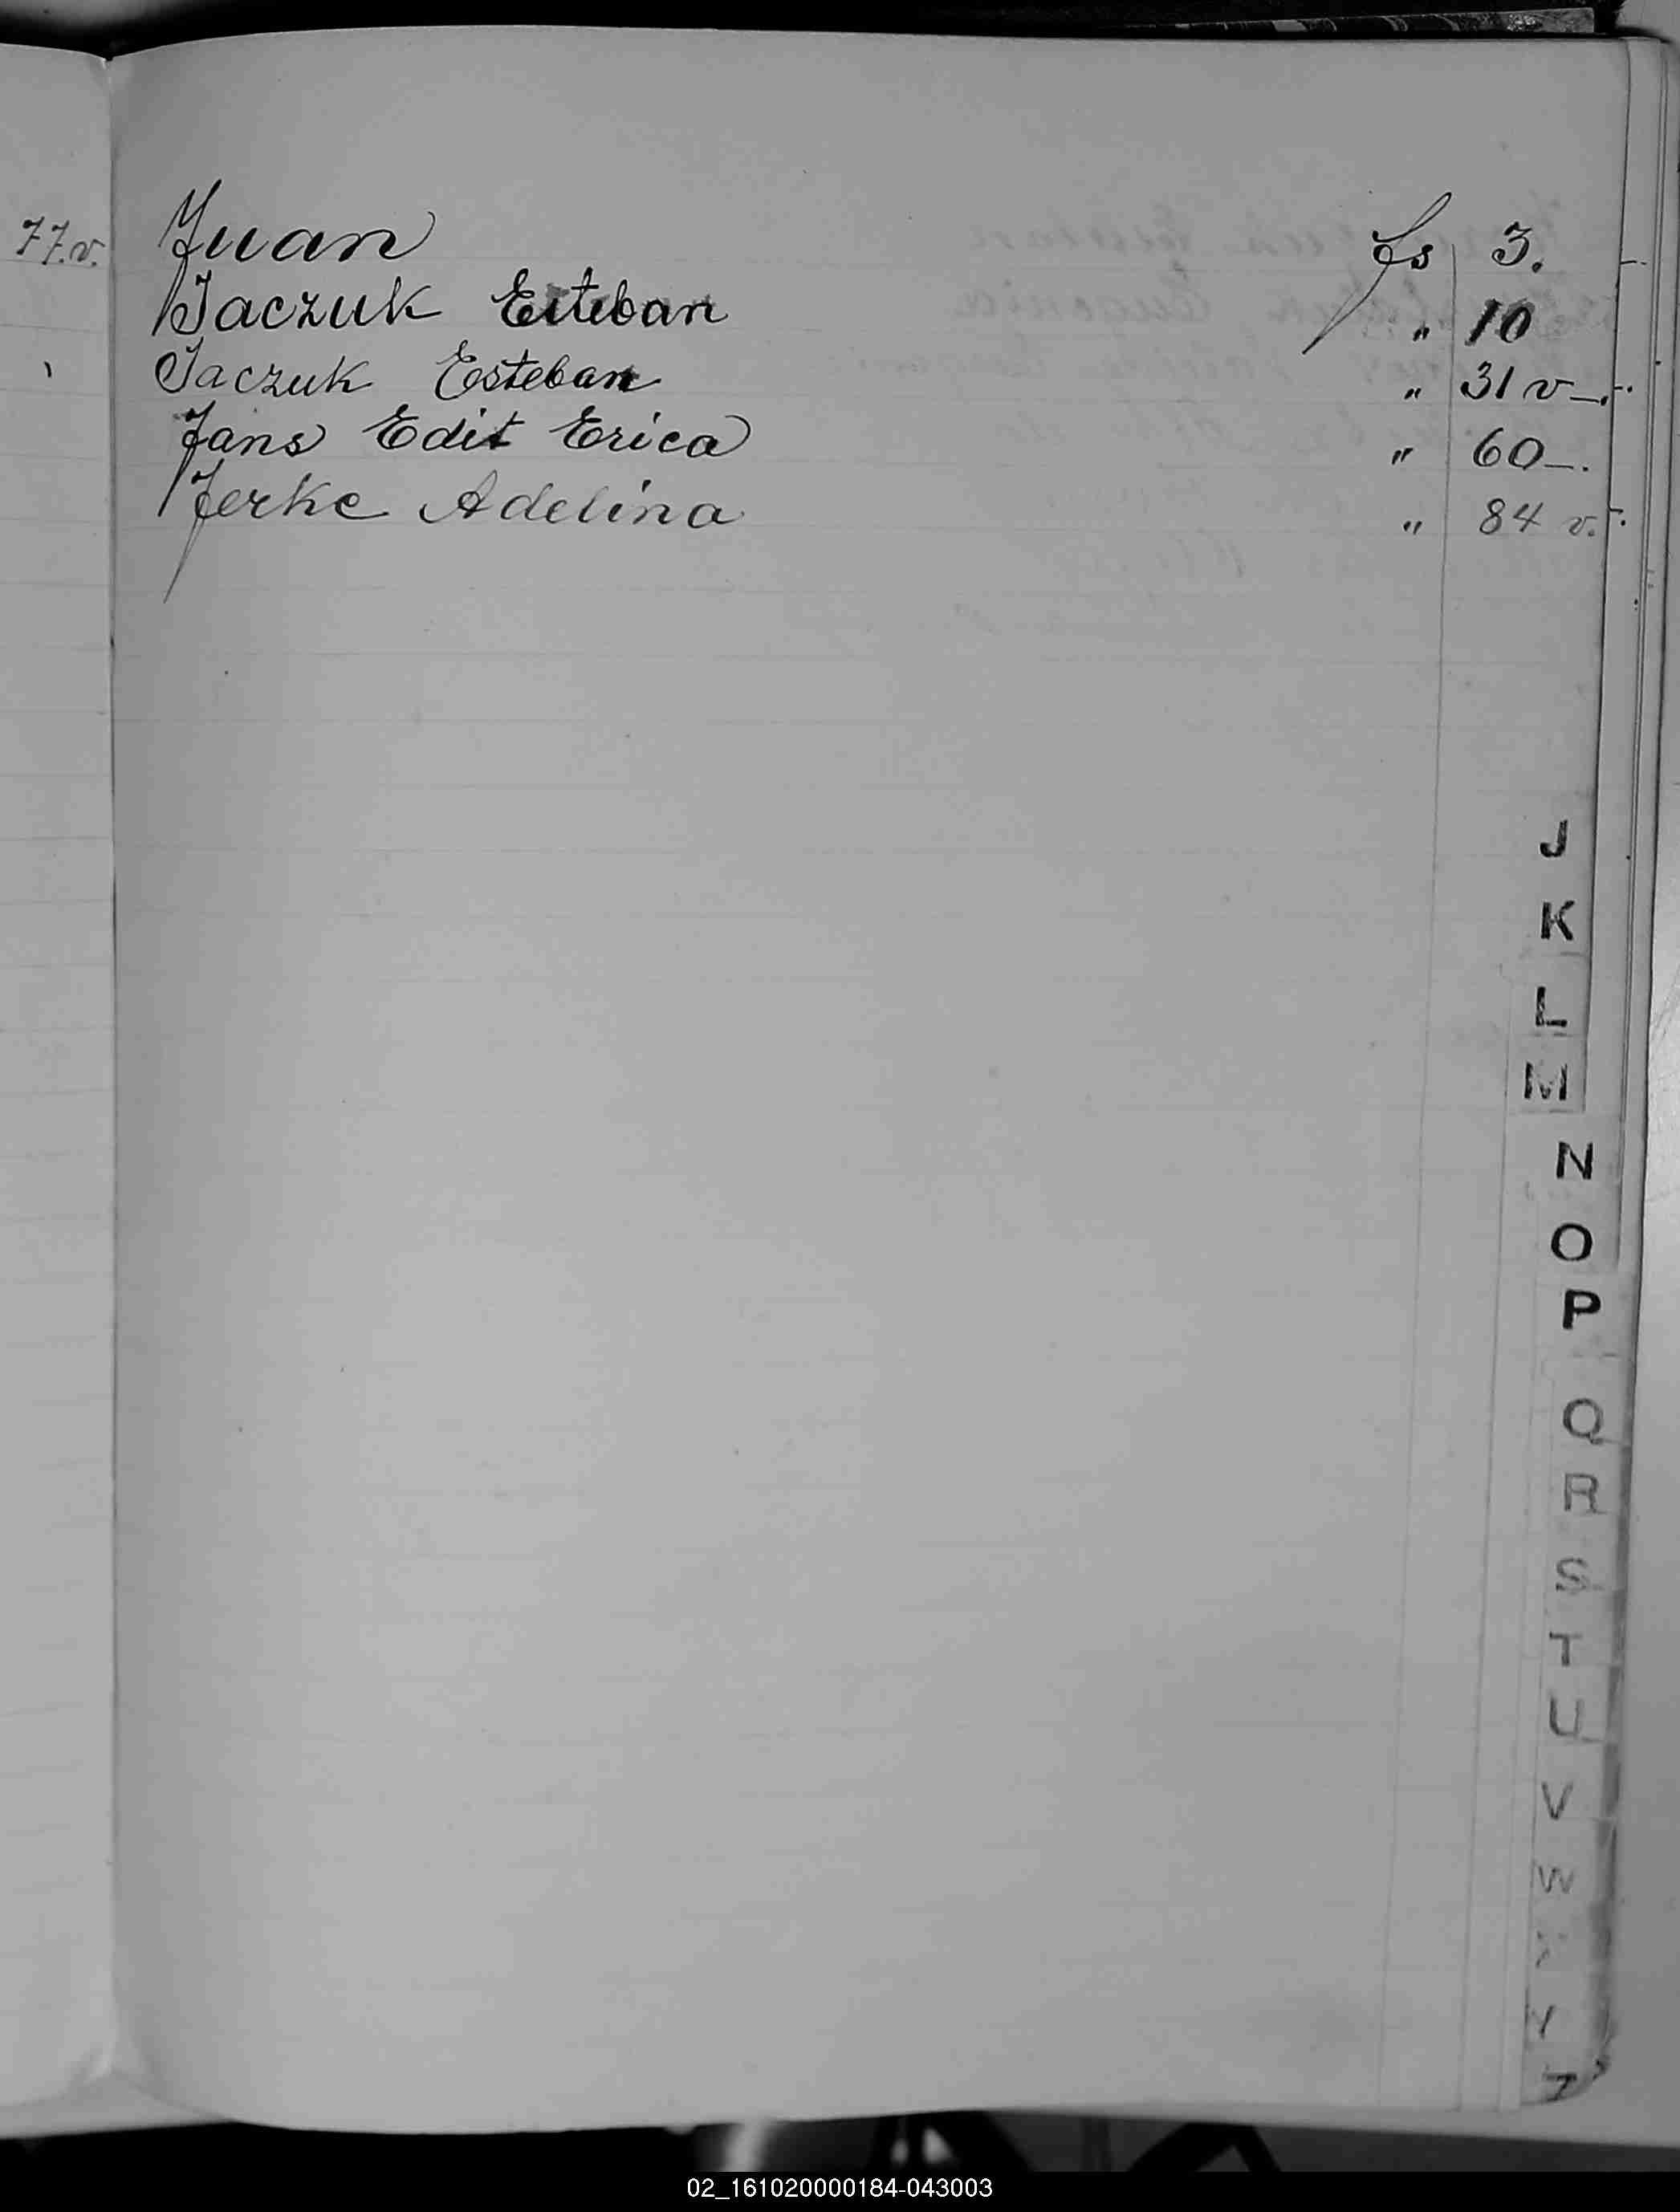 77.v.
Juan fs 3.
Jaczuk Esteban " 10
Jaczuk Esteban " 31 v_.
Jans Edit Erica " 60_.
Jerke Adelina " 84 v.
J
K
L
M
N
O
P
Q
R
S
T
U
V
W
X
Y
Z
02_161020000184-043003